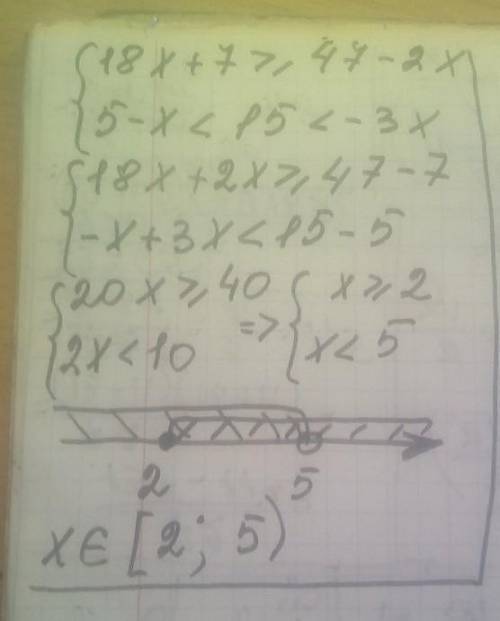 {18x+7⩾47-2x
{5-x<15<-3x
{18x+2x⩾47-7
{-x+3x<15-5
{20x⩾40 {x⩾2
{2x<10 => {x<5
2 5
x∈[2; 5)